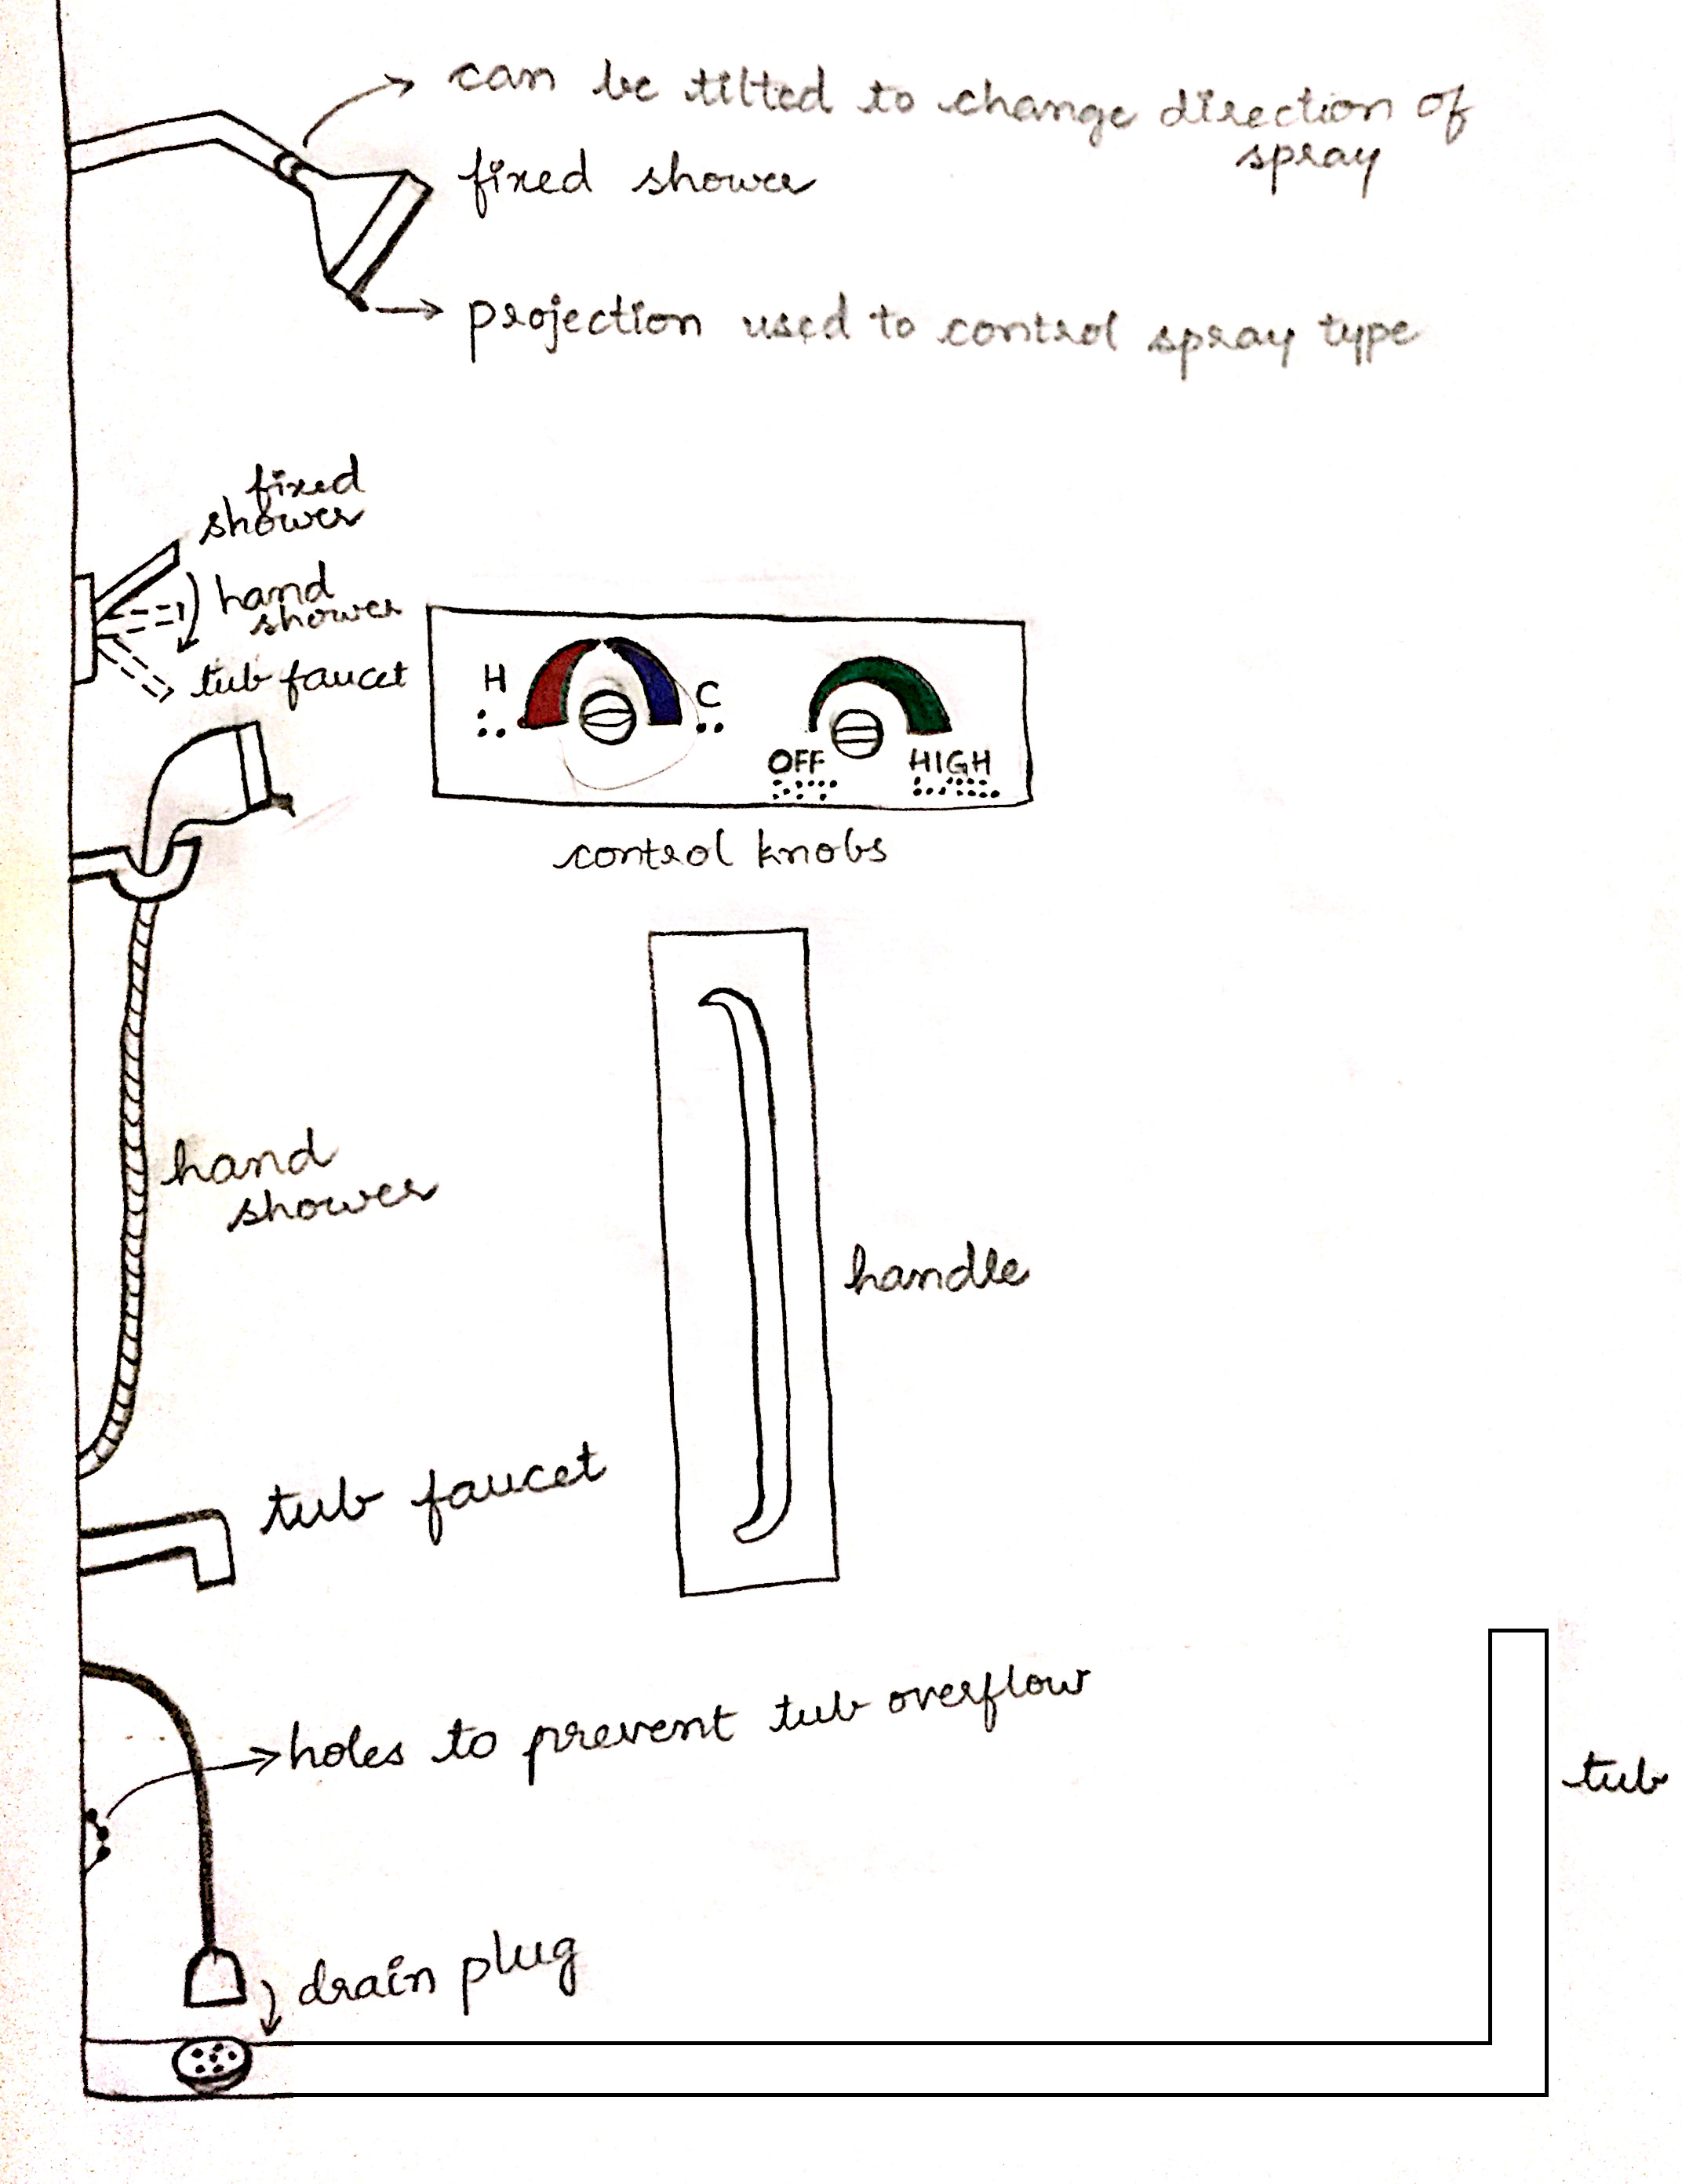 can be tilted to change direction of
spray
fixed shower
projection used to control spray type
fixed
shower
hand
shower
tub faucet
H
C
OFF
HIGH
control knobs
hand
shower
handle
tub faucet
holes to prevent tub overflow
tub
drain plug